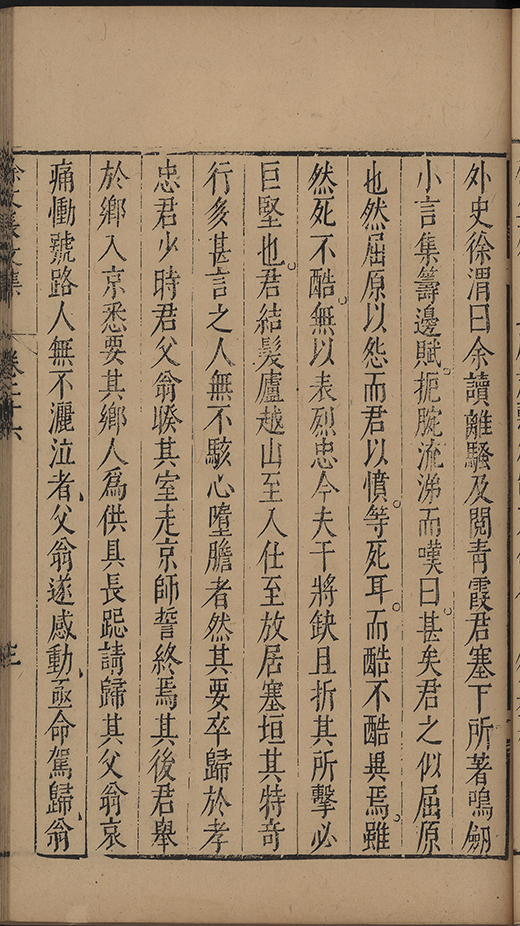 外史徐渭曰余讀離騷及閱青霞君塞下所著鳴劔
小言集籌邊賦扼腕流涕而嘆曰甚矣君之似屈原
也然屈原以怨而君以憤等死耳而酷不酷異焉雖
然死不酷無以表烈忠今夫干將缺且折其所擊必
巨堅也君結髮廬越山至入仕至放居塞垣其特奇
行多甚言之人無不駭心墮膽者然其要卒歸於孝
忠君少時君父翁睽其室走京師誓終焉其後君舉
於鄉入京悉要其鄉人爲供具長跽請歸其父翁哀
痛慟號路人無不灑泣者父翁遂感動亟命駕歸翁
徐文長文集
卷之二十六